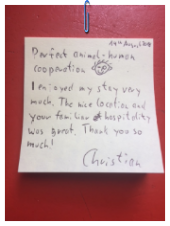 14th August 2018
Perfect animal-human
cooperation
I enjoyed my stay very
much. The nice location and
your families hospitality
was great. Thank you so
much!
Christina